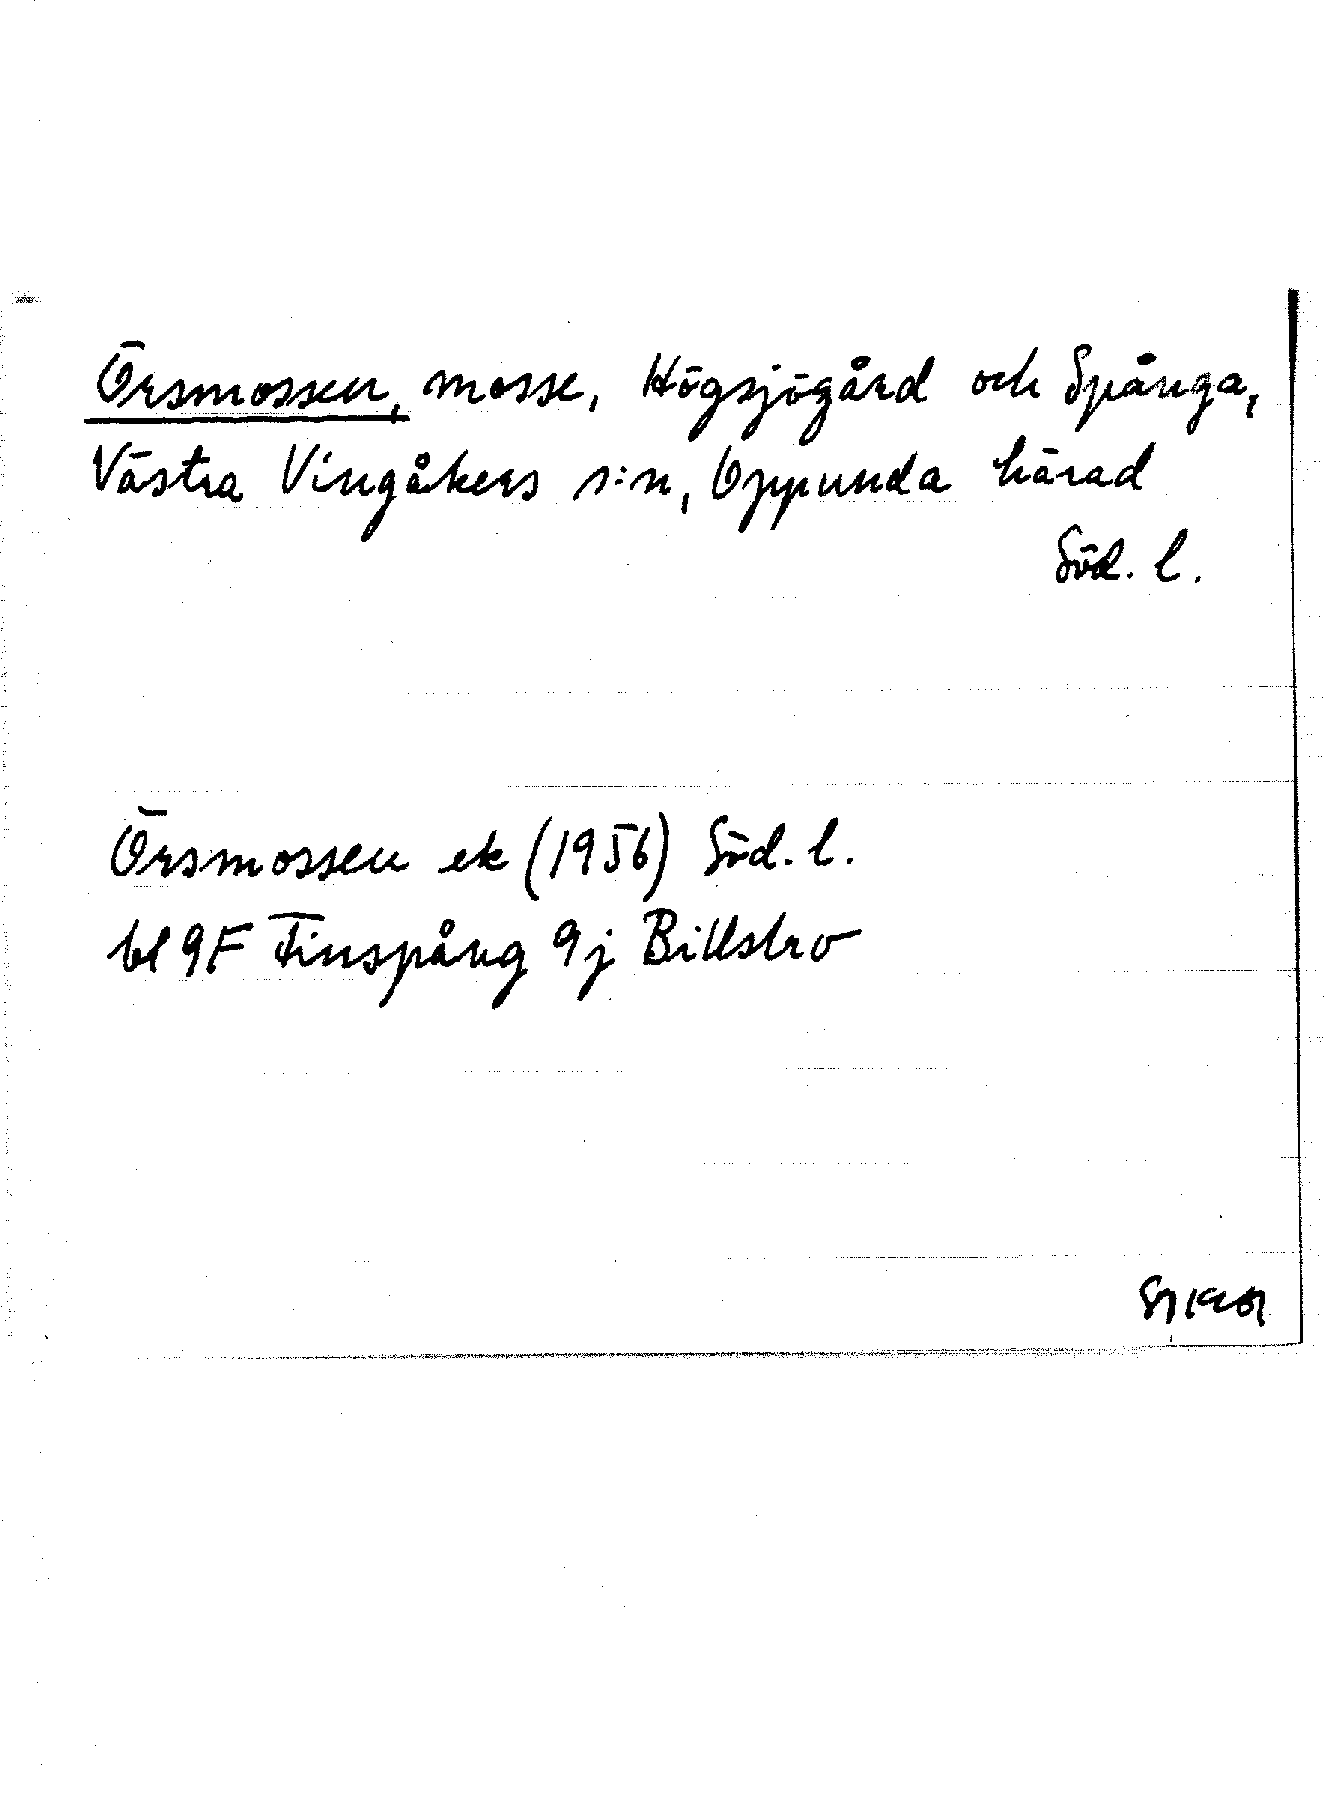 Örsmossen, mosse, Högsjögård och Spånga,
Västra Vingåkers s:n, Oppunda härad
Söd. l.
Örsmossen ek (1956) Söd. l.
bl 9F Finspång 9j Billsbro